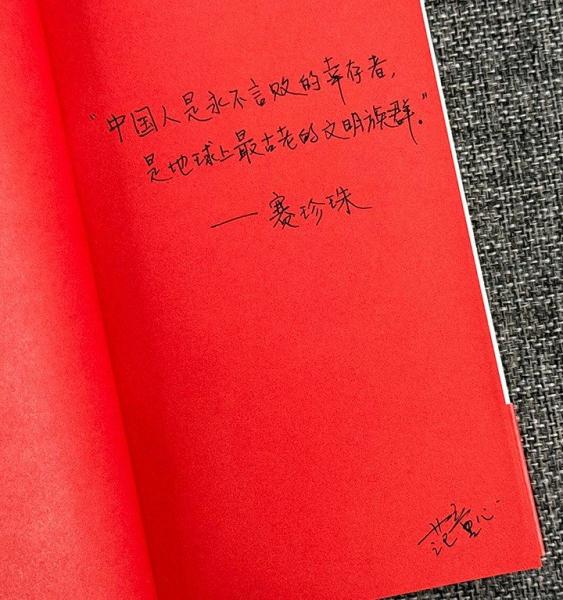 “中国人是永不言败的幸存者,
是地球上最古老的文明族群。”
——赛珍珠
范童心